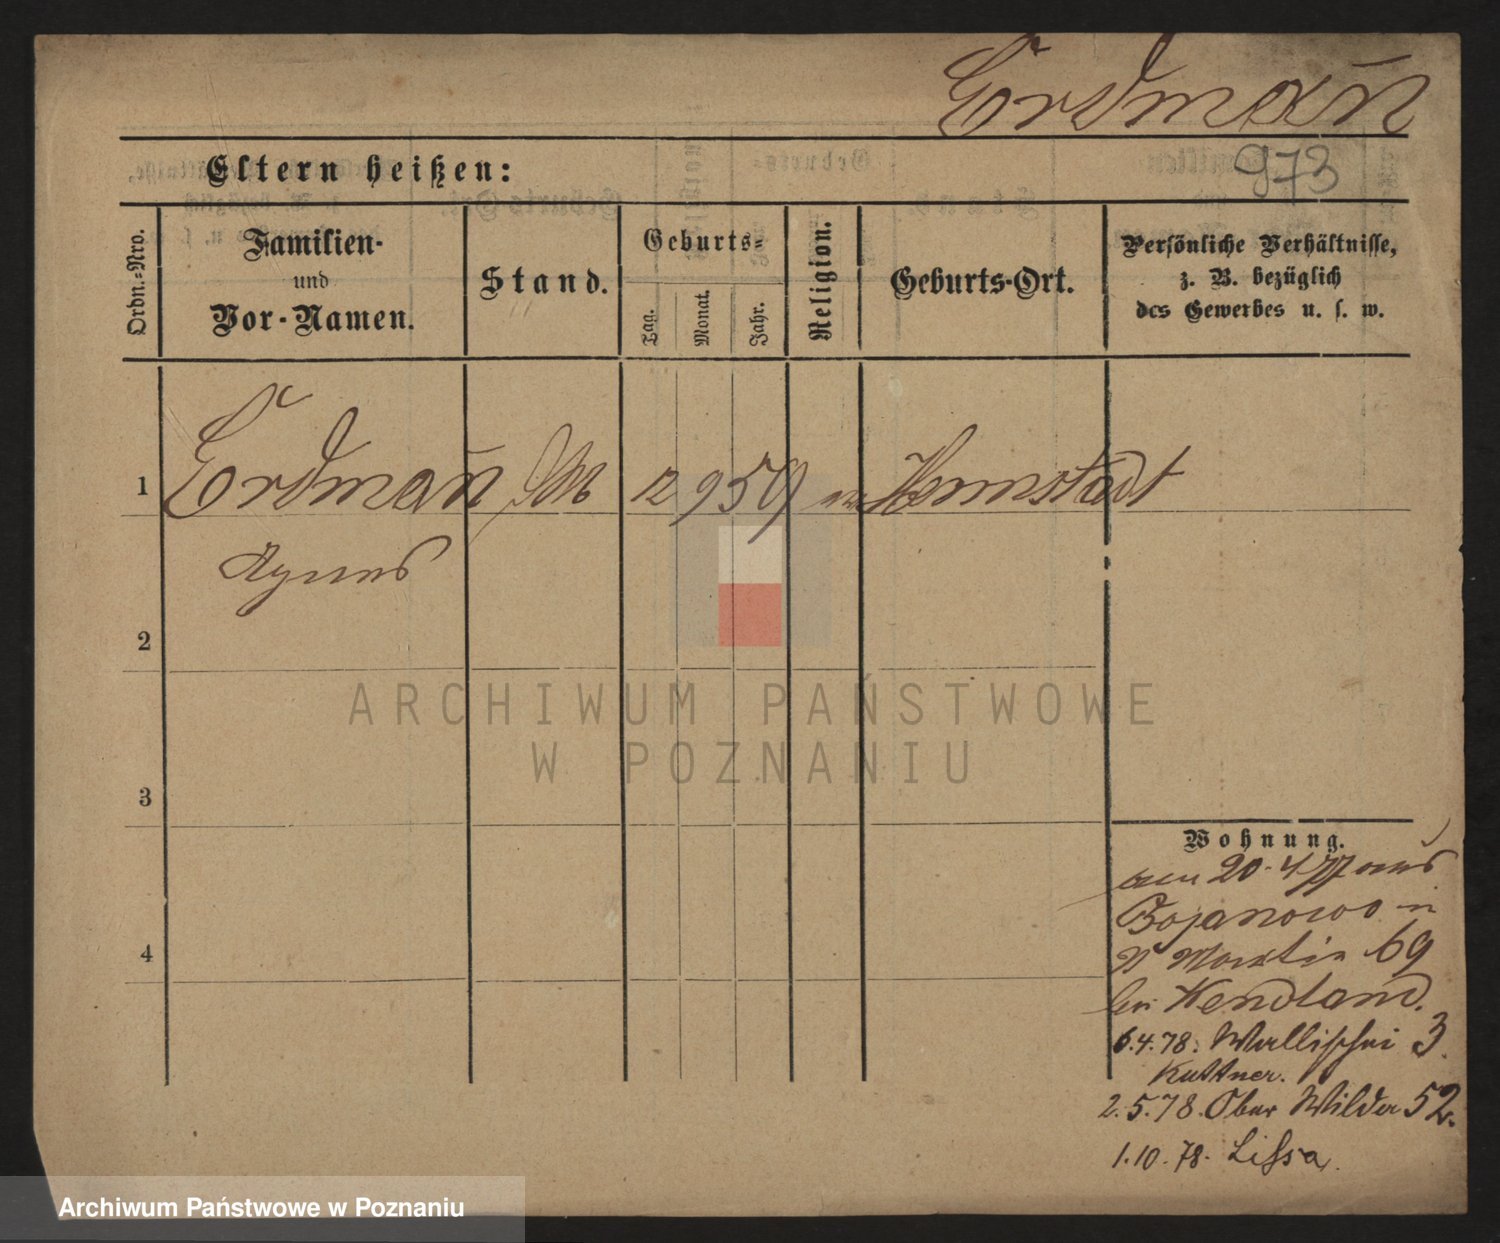 Erdmañ
973
Eltern heißen:
Ordn.-Nro.
Familien-
und
Vor-Namen.
Stand.
Geburts-
Tag.
Monat.
Jahr.
Religion.
Geburts-Ort.
Persönliche Verhältnisse,
z. B. bezüglich
des Gewerbes u. s. w.
1 Erdmañ 12 9 59 Hernstadt
Agnes
2
3
4
Wohnung.
am 20.4 77 aus
Bojanowo in
St Martin 69
bei Wendland.
6.4.78. Wallischei 3.
Kuttner.
2.5.78. Ober Wilda 52.
1.10.78. Lissa.
ARCHIWUM PAŃSTWOWE
W POZNANIU
Archiwum Państwowe w Poznaniu